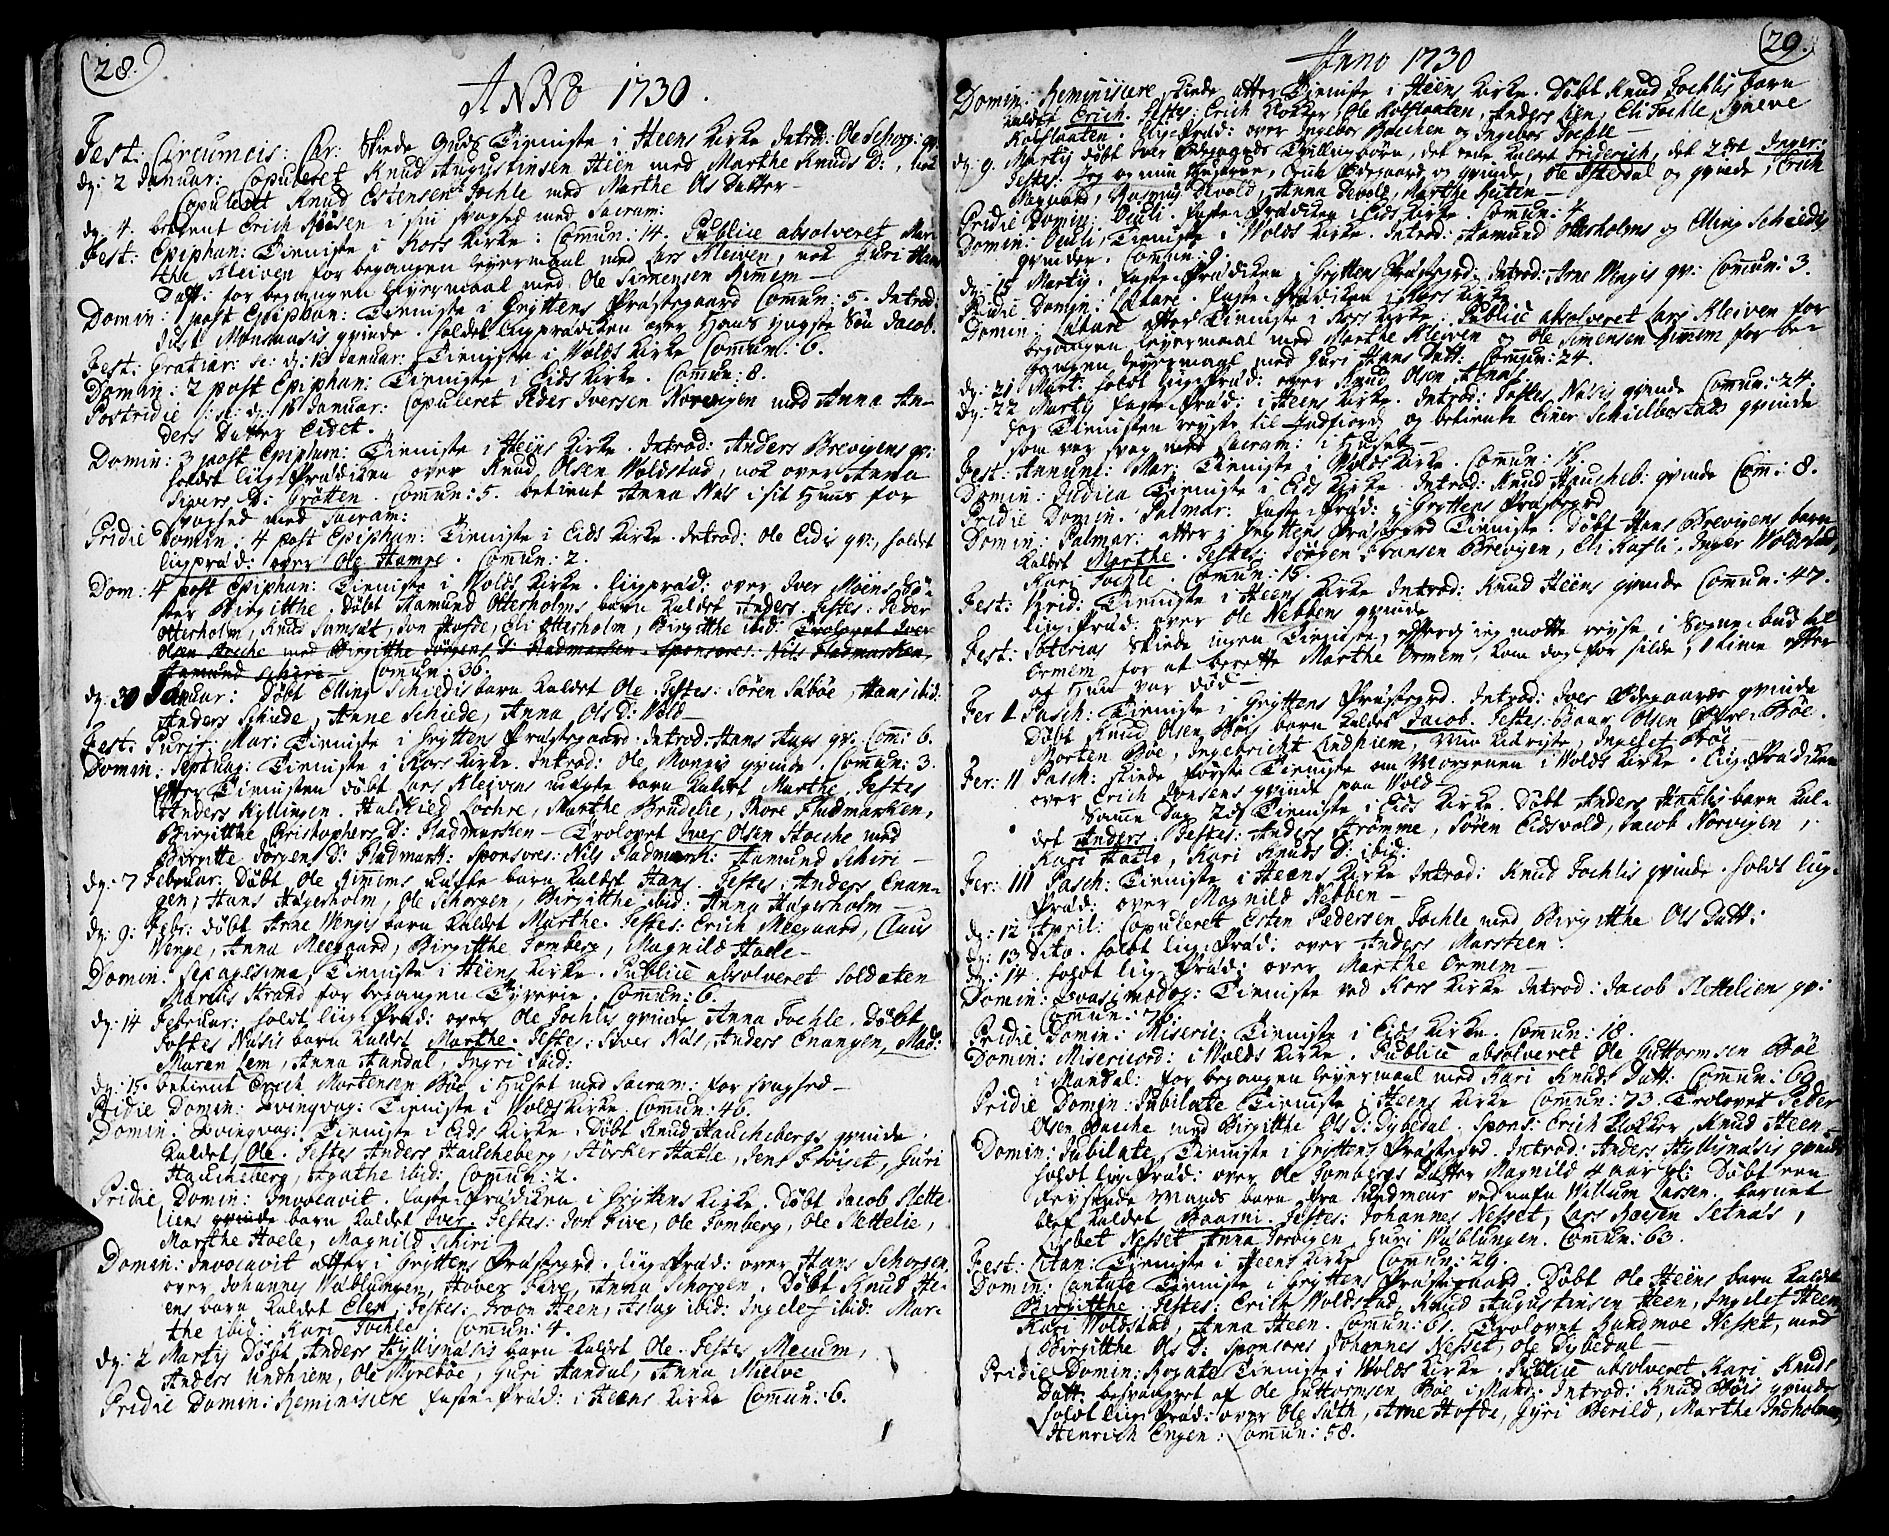 (28.)
ANNO 1730.
Fest: Circumcis: Chr: Skiede Guds Tieniste i Heens Kirke Introd: Ole Schorg: qv:
dz: 2 Januar: Copuleret Knud Augustinsen Heen med Marthe Knuds D:, nok
Copuleret Knud Estensen Tochle med Marthe Ols Datter
dz. 4. betient Erich i sin svaghed med Sacram:
Fest: Epiphan: Tieniste i Kors Kirke: Comun: 14. Publice absolveret Mar-
the Kleiven for begangen leyermaal med Lars Kleiven, nok Guri Hans
Datt: for begangen leyermaal med Ole Simensen Rimmem
Domin: 1 post Epiphan: Tieniste i Gryttens Præstegaard Comun: 5. Introd:
Just Monsnæsis qvinde. holdet liigprædiken over Hans yngste Søn Jacob.
Fest: Gratiar: sc: dz: 13 Januar: Tieniste i Wolds Kirke Comun: 6.
Domin: 2 post Epiphan: Tieniste i Eids Kirke. Comun: 8.
Postridie sc: dz: 16 Januar: Copuleret Peder Iversen Norvigen med Anna An-
ders Datter Eidet.
Domin: 3 post Epiphan: Tieniste i Heens Kirke. Introd: Anders Brevigens qv:
holdet liig-Prædiken over Knud Olsen Woldstad, nok over Anna
Sivers D: Grøtten. Comun: 5. betient Anna Næs i sit Huus for
svaghed med Sacram:
Pridie Domin: 4 post Epiphan: Tieniste i Eids Kirke. Introd: Ole Eidis qv:, holdet
liigpræd: over Ole Hampe. Comun: 2.
Dom: 4 post Epiphan: Tieniste i Wolds Kirke. liigpræd: over Iver Moens Dót-
ter Birgitthe. Døbt Hamund Otterholms barn kaldet Anders. Testes: Peder
Otterholm, Knud Sumsæt, Jon Hofde, Eli Otterholm, Birgitthe ibid: Trolovet Iver
Olsen Hosche med Birgitthe Jørgens D: Fladmarken. Sponsores: Nils Fladmarken,
Hamund Schiri. Comun: 36.
dz: 30 Januar: Døbt Elling Schiedis barn kaldet Ole. Testes: Søren Sæbøe, Hans ibid.
Anders Schiede, Anne Schiede, Anna Ols D: Wold
Fest: Purif: Mar: Tieniste i Gryttens Præstegaard. Introd: Hans Hags qv: Com: 6.
Domin: Septuag: Tieniste i Kors Kirke. Introd: Ole Mongis qvinde. Comun: 3.
efter Tienisten døbt Lars Kleivens uægte barn kaldet Marthe. Testes
Anders Kyllingen. Halskied Lochre, Marthe Brudelie, Thore Fladmarken,
Birgitthe Christophers D: Fladmarken — Trolovet Iver Olsen Hosche med
Birgitte Jorgens D: Fladmark: Sponsores: Nils Fladmark: Hamund Schiri
dz: 7 Februar: Døbt Ole Rimmems uægte barn kaldet Hans. Testes: Anders Enan-
gen, Hans Hagerholm, Ole Schorgen, Birgitthe ibid: Anna Hagerholm
dz: 9: Febr: døbt Arne Wengis barn kaldet Marthe. Testes: Erich Meegaard, Claus
Wenge, Anna Meegaard, Birgitthe Tomberg, Magnild Haele
Domin. Sexagesima, Tieniste i Heens Kirke. Publice absolveret Soldaten
Marchis Strand for begangen Tyverie. Comun: 6.
dz: 14 Februar: holdt liig-Præd: over Ole Tochlis qvinde Anna Tochle. Døbt
Tostes Næsis barn kaldet Marthe. Testes: Iver Næs, Anders Enangen, Mad:
Maren Lem, Anna Aandal, Ingri ibid:
dz: 15. betient Erich Mortensen Bøe i Huset med Sacram: for svaghed
Pridie Domin: Qvinqvag: Tieniste i Wolds Kirke. Comun: 46.
Domin: Qvinqvag: Tieniste i Eids Kirke. Døbt Knud Hauchebergs qvinde
kaldet Ole. Testes Anders Haucheberg, Størker Hatle, Jens Flöiset, Guri
Haucheberg, Agathe ibid: Comun: 2.
Pridie Domin: Invocavit. faste-Prædiken i Gryttens Kirke. Døbt Jacob Slette-
liens qvinde barn kaldet Iver. Testes: Jon Five, Ole Tomberg, Ole Slettelie,
Marthe Hoele, Magnild Schiri
Domin: Invocavit atter i Gryttens Præstegrd. liig-Præd: over Hans Schorgen,
over Johannes Wæblungen, Haver Fare, Anna Schorgen. Døbt Knud He-
ens barn kaldet Elen. Testes: Troon Heen, Aslag ibid: Ingelef ibid: Mar-
the ibid: Kari Tochle. Comun: 4.
dz. 2 Martij Døbt Anders Hyllisnæsis barn kaldet Ole. Testes Mecum,
Anders Undhiem, Ole Myrebøe, Guri Aandal, Anna Mielve
Pridie Domin: Reminiscere faste-Præd: i Heens Kirke Comun: 6.
(29.)
Anno 1730
Domin: Reminiscere skiede atter Tieniste i Heens Kirke. Døbt Knud Tochlis barn
kaldet Erich. Testes: Erich Klokker, Ole Kolflaaten, Anders Een, Eli Tochle, Synneve
Kolflaaten. liig-Præd: over Ingebor Bacchen og Ingebor Tochle
dz. 9. Martij døbt Iver Ødegaards Tvillingbørn, det eene kaldet Friderich, det 2det Inger.
Testes: Jeg og min Hustrue, Erich Ødegaard og qvinde, Ole Isterdal og qvinde, Erich
Sogaard, Rasmus Devold, Anna Devold, Marthe Heiten
Pridie Domin: Oculi. faste-Prædiken i Eids Kirke. Comun: 4
Domin: Oculi, Tieniste i Wolds Kirke. Introd: Hamund Otterholms og Elling Schiedis
qvinder. Comun: 9.
dz: 15 Martij. faste-Prædiken i Gryttens Præstegrd. Introd: Arne Wengis qv: Comun: 3.
Pridie Domin: Lætare. faste-Prædiken i Kors Kirke
Domin: Lætare atter Tieniste i Kors Kirke. Publice absolveret Lars Kleiven for
begangen leyermaal med Marthe Kleiven og Ole Simensen Rimmem for be-
gangen leyermaal med Guri Hans Datt: Comun: 24.
dz: 21 Mart: holdt liig-Præd: over Knud Olsen Næs
dz: 22 Martij faste-Præd: i Heens Kirke. Introd: Tostes Næsis qvinde Comun: 24.
for Tienisten reyste til Indfiord og betiente Einer Schielbostads qvinde
som var svag med Sacram: i Huset
Fest: Annunc: Mar: Tieniste i Wolds Kirke. Comun: 18.
Domin: Judica Tieniste i Eids Kirke. Introd: Knud Haucheb: qvinde Com: 8.
Pridie Domin. Palmar: faste-Præd: i Gryttens Præstegrd
Domin: Palmar: atter i Gryttens Præstegrd Tieniste. Døbt Hans Brevigens barn
kaldet Marthe. Testes: Jørgen Hansen Brevigen, Eli Kafli, Inger Woldstad,
Kari Tochle. Comun: 15.
Fest: Virid: Tieniste i Heens Kirke Introd: Knud Heens qvinde Comun: 47.
liig-Præd: over Ole Nebbens qvinde
Fest: Soterias skiede ingen Tieniste, efterdj ieg motte reyse i Sogne-bud til
Ormem for at berette Marthe Ormem, kom dog for silde, 1 time efter
at Hun var død
Fer I Pasch: Tieniste i Gryttens Præstegrd. Introd: Ivers Ødegaards qvinde
Døbt Knud Olsen Bøis barn kaldet Jacob. Testes: Baar Olsen Øfre-Bøe.
Morten Bøe, Ingebricht Lindhiem, Min Kierriste, Ingelef Bøe
Fer: II Pasch: skiede første Tieniste om Morgenen i Wolds Kirke. liig-Prædiken
over Erich Jonsens qvinde paa Wold
Samme Dag 2det Tieniste i Eids Kirke. Døbt Anders Hatlis barn kal-
det Anders. Testes: Anders Strømme, Søren Eidsvold, Jacob Norvigen,
Kari Hatle, Kari Knuds D: ibid:
Fer: III Pasch: Tieniste i Heens Kirke Introd: Knud Tochlis qvinde. holdt liig-
Præd: over Magnild Nebben
dz: 12 April: Copuleret Esten Pedersen Tochle med Birgitthe Ols Datt:
dz: 13 dito. holdt liig-Præd: over Anders Marsteen
dz: 14. holdt liig-Præd: over Marthe Ormem
Domin: Qvasimodog: Tieniste ved Kors Kirke Introd: Jacob Slettelien qv:
Comun: 76.
Pridie Domin: Miseric: Tieniste i Eids Kirke. Comun: 18.
Domin: Misericord: i Wolds Kirke. Publice absolveret Ole Guttormsen Bøe
i Mandal: for begangen leyermaal med Kari Knuds Datt: Comun: 69.
Pridie Domin: Jubilate Tieniste i Heens Kirke Comun: 73. Trolovet Peder
Olsen Bosche med Birgitthe Ols D: Dybedal. Spons: Erich Klokker, Knud Heen
Domin: Jubilate, Tieniste i Gryttens Præstegrd. Introd: Anders Hyllisnæsis qvinde
holdt liig-Præd: over Ole Tombergs Datter Magnild 4 aar gl: Døbt een
reysende Mands barn fra Sundmøer ved nafn Willum Lassen. barnet
blef kaldet Baarni. Testes: Johannes Nesset, Lars Roesen Setnæs,
Lisbet Nesset, Anna Torvigen, Guri Wæblungen. Comun: 63.
Fest: Litan: Tieniste i Heens Kirke Comun: 29.
Domin: Cantate Tieniste i Gryttens Præstegaard. Døbt Ole Heens barn kaldet
Birgitthe. Testes: Erich Woldstad, Knud Augustinsen Heen, Ingelef Heen,
Kari Woldstad, Anna Heen. Comun: 61. Trolovet Sandmoe Nesset, med
Birgitthe Ols D: Sponsores Johannes Nesset, Ole Dybedal
Pridie Domin: Rogate Tieniste i Wolds Kirke. Publice absolveret Kari Knuds
Datt: besvangret af Ole Guttormsen Bøe i Mand: Introd: Knud Bøis qvinde
holdt liig-Præd: over Ole Sæth, Arne Hofde, Gyri Berild, Marthe Indholmen,
Henrich Engen: Comun: 58.